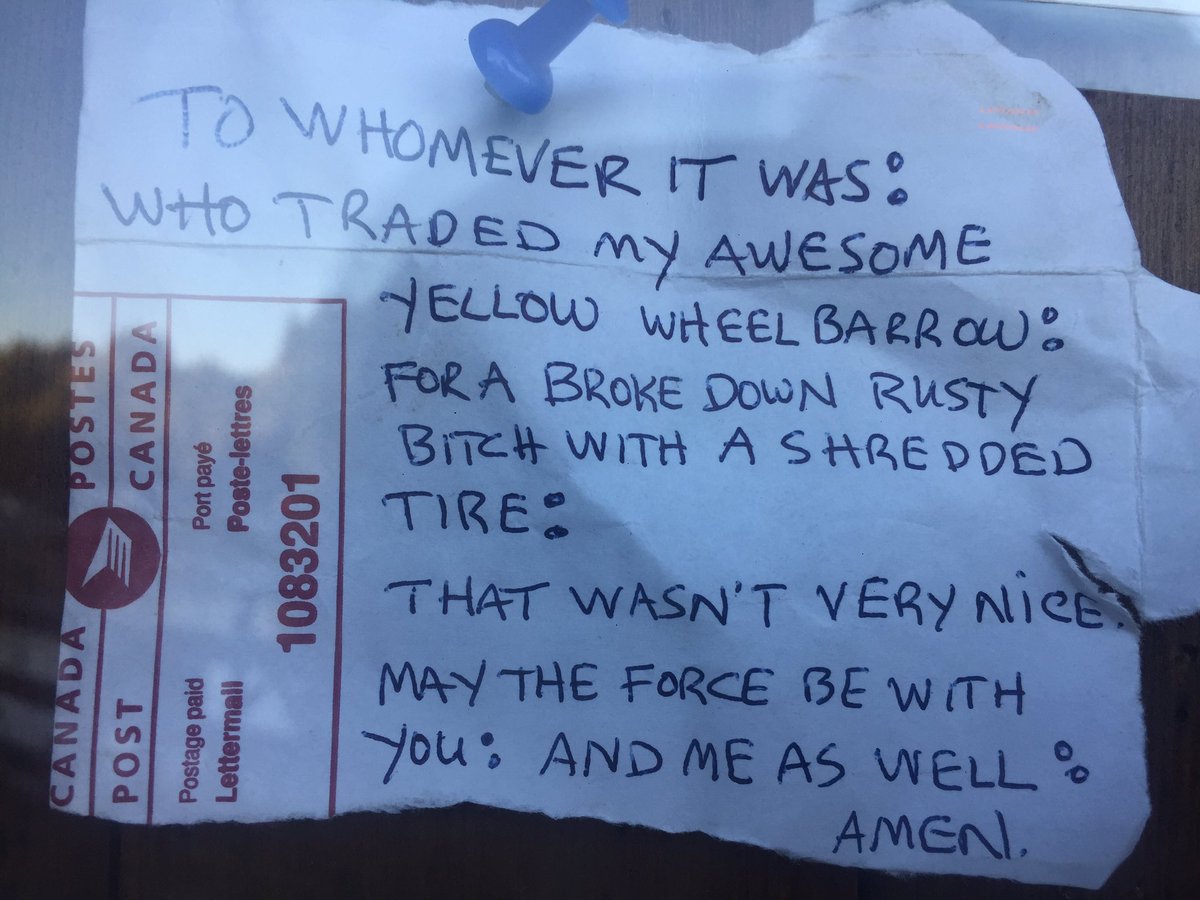 TO WHOMEVER IT WAS:
WHO TRADED MY AWESOME
YELLOW WHEELBARROW:
FOR A BROKE DOWN RUSTY
BITCH WITH A SHREDDED
TIRE:
THAT WASN'T VERY NICE.
MAY THE FORCE BE WITH
YOU: AND ME AS WELL:
AMEN.
CANADA POSTES
POST CANADA
Postage paid Port payé
Lettermail Poste-lettres
1083201